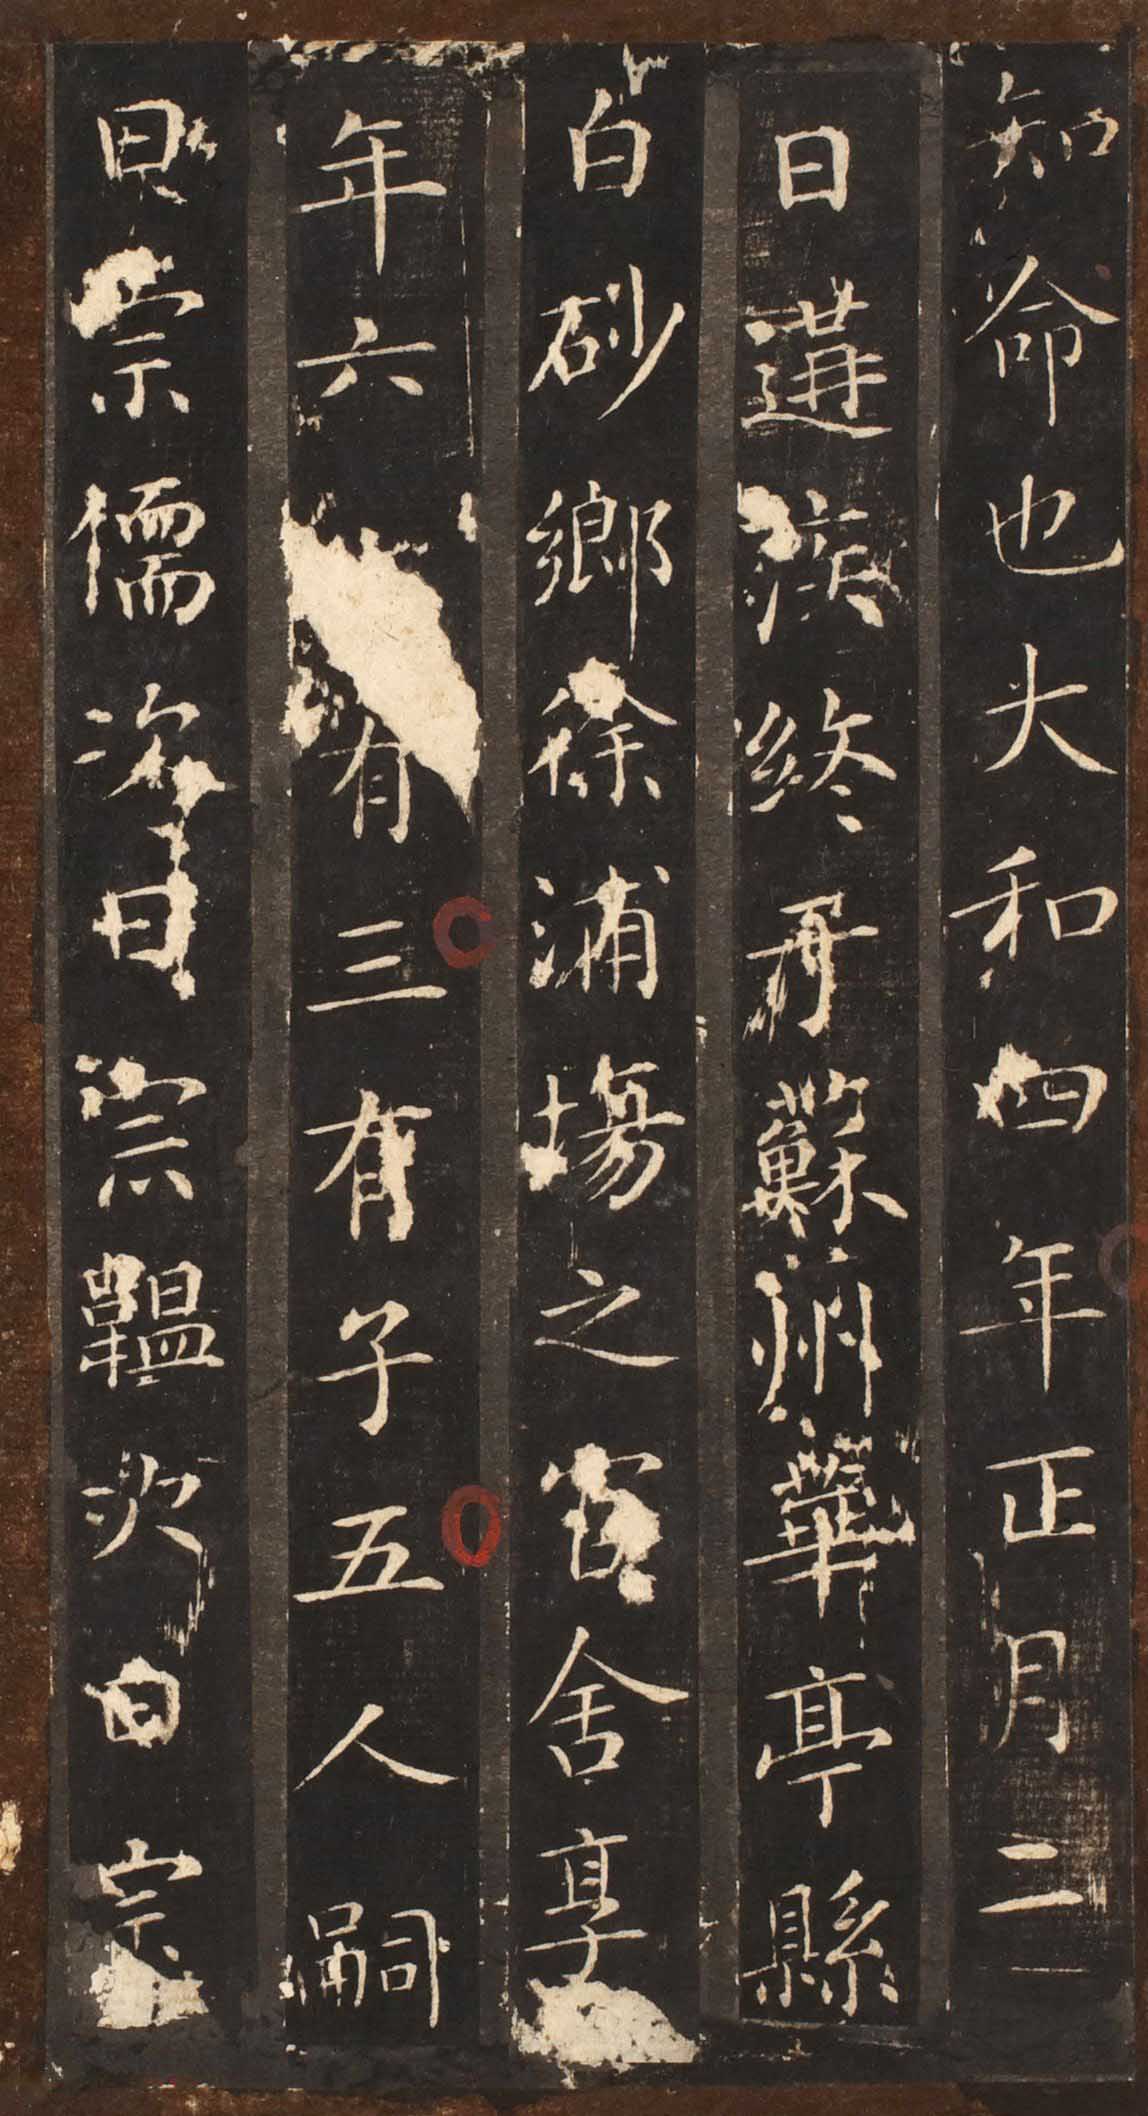 知命也大和四年正月二
日遘疾終蘇州華亭縣
白砂鄉徐浦場之官舍享
年六有三有子五人嗣
曰宗儒次曰宗韞次曰宗